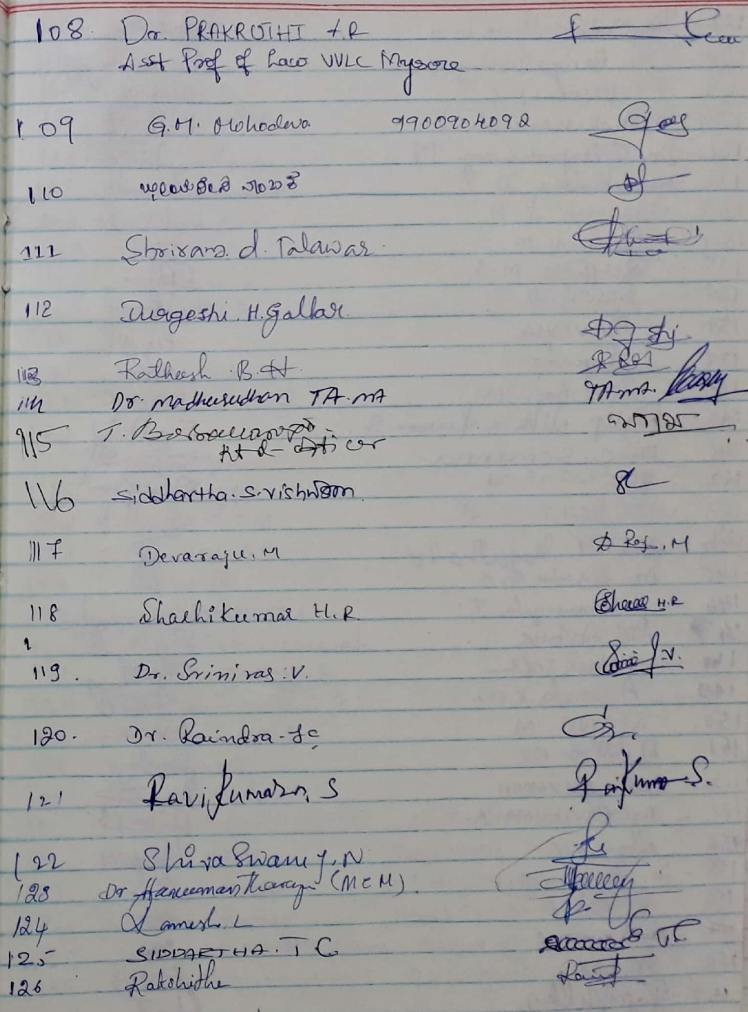 108. Dr. PRAKRUTHI A R
Asst Prof of Law VVLC Mysore
109 G.M. Mahadeva 9900904092
110
111 Shrirang. d. Talawar.
112 Durgeshi. H. Gallar
113 Ratheesh B.H
114 Dr. Madhusudhan TA.MA TA.MA.
115 T. Basavaraj
116 Siddhartha. S.
117 Devaraju. M D Raj. M
118 Shashikumar H.R. H.R
119. Dr. Srinivas. V. V.
120. Dr. Raindra
121 Ravi Kumar, S RaviKumar S.
122 Shiva Swamy. N
123 Dr Hanumantharaju (MCM).
124 Ramesh. L
125 SIDDARTHA. T C T C
126 Rakshitha